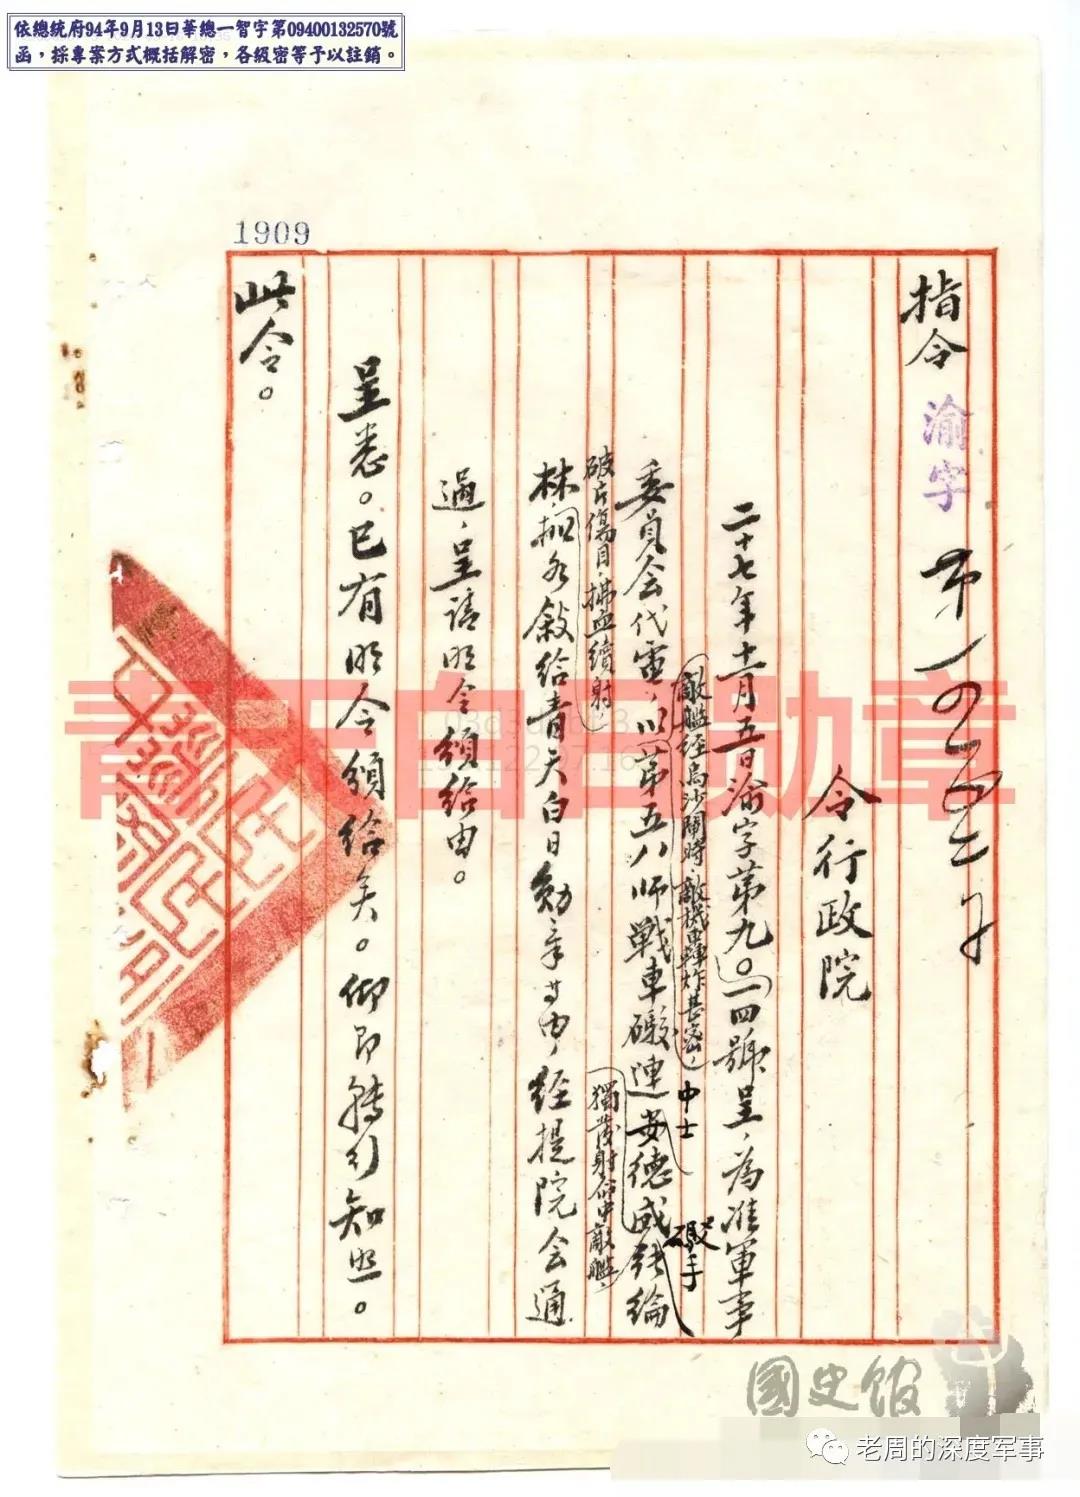 依總統府94年9月13日華總一智字第09400132570號
函，採專案方式概括解密，各級密等予以註銷。
1909
指令 渝字 第一四
令行政院
二十七年十二月五日渝字第九〇一四號呈，為准軍事
敵艦經烏沙閘時，敵機轟炸甚密，
中士
砲手
委員会代電，以第五八师戰車礮連安德成錢綸
破片傷目，拂血續射，
獨發射命中敵艦，
林，擬各敘給青天白日勛章等由，經提院会通
過，呈請明令頒給由。
呈悉。已有明令頒給矣。仰即轉行知照。
此令。
青天白日勋章
國史館
老周的深度军事